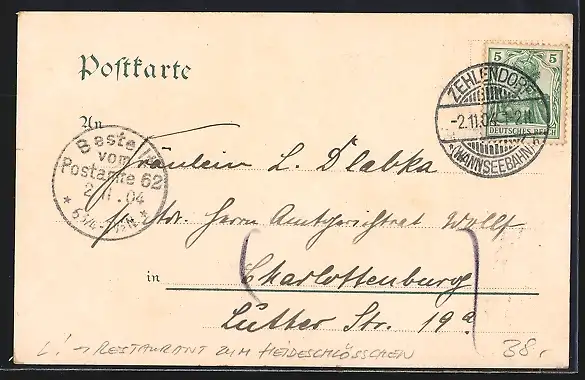 Postkarte
5 5
DEUTSCHES REICH
ZEHLENDORF
-2.11.04. 1-2 N.
* (WANNSEEBAHN) *
An
Bestellt
vom
Postamte 62
2.11.04
Fräulein L. Dlabka
Adr. Herrn Amtsgerichtsrat Wolff
in Charlottenburg
Lutter Str. 19a
L! → RESTAURANT ZUM HEIDESCHLÖSSCHEN
38,-